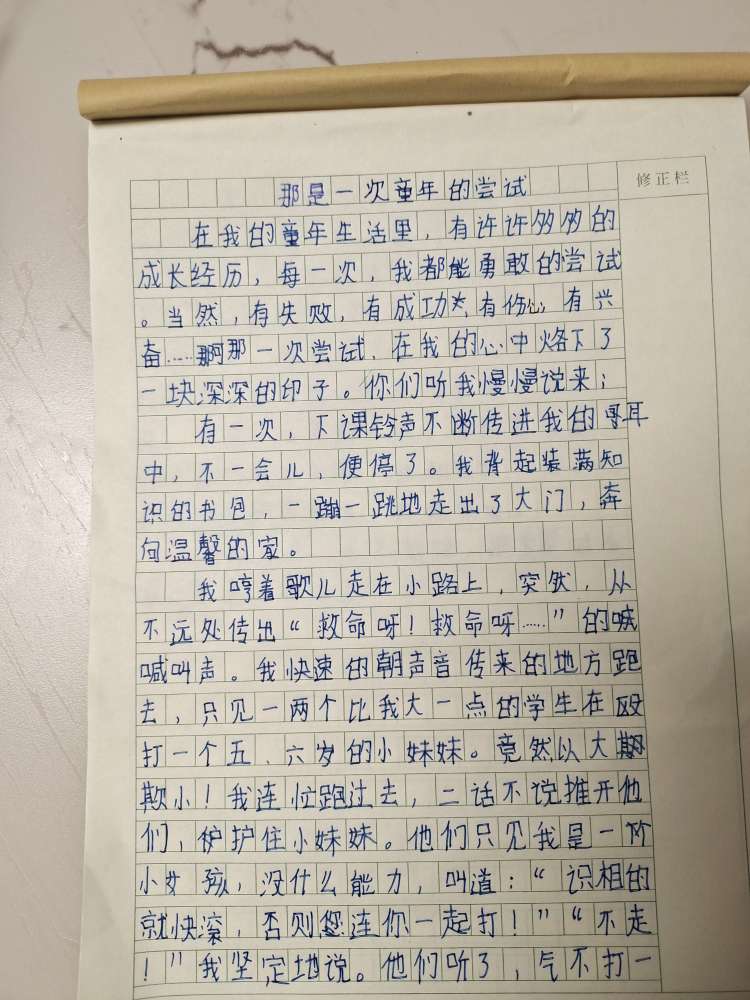 那是一次童年的尝试
修正栏
在我的童年生活里，有许许够够的
成长经历，每一次，我都能勇敢的尝试
。当然，有失败，有成功，有伤心，有兴
奋……那一次尝试，在我的心中烙下了
一块深深的印子。你们听我慢慢说来；
有一次，下课铃声不断传进我的耳
中，不一会儿，便停了。我背起装满知
识的书包，一蹦一跳地走出了大门，奔
向温馨的家。
我哼着歌儿走在小路上，突然，从
不远处传出“救命呀！救命呀……”的喊
喊叫声。我快速的朝声音传来的地方跑
去，只见一两个比我大一点的学生在殴
打一个五、六岁的小妹妹。竟然以大欺
欺小！我连忙跑过去，二话不说推开他
们，护住小妹妹。他们只见我是一个
小女孩，没什么能力，叫道：“识相的
就快滚，否则连你一起打！”“不走
！”我坚定地说。他们听了，气不打一